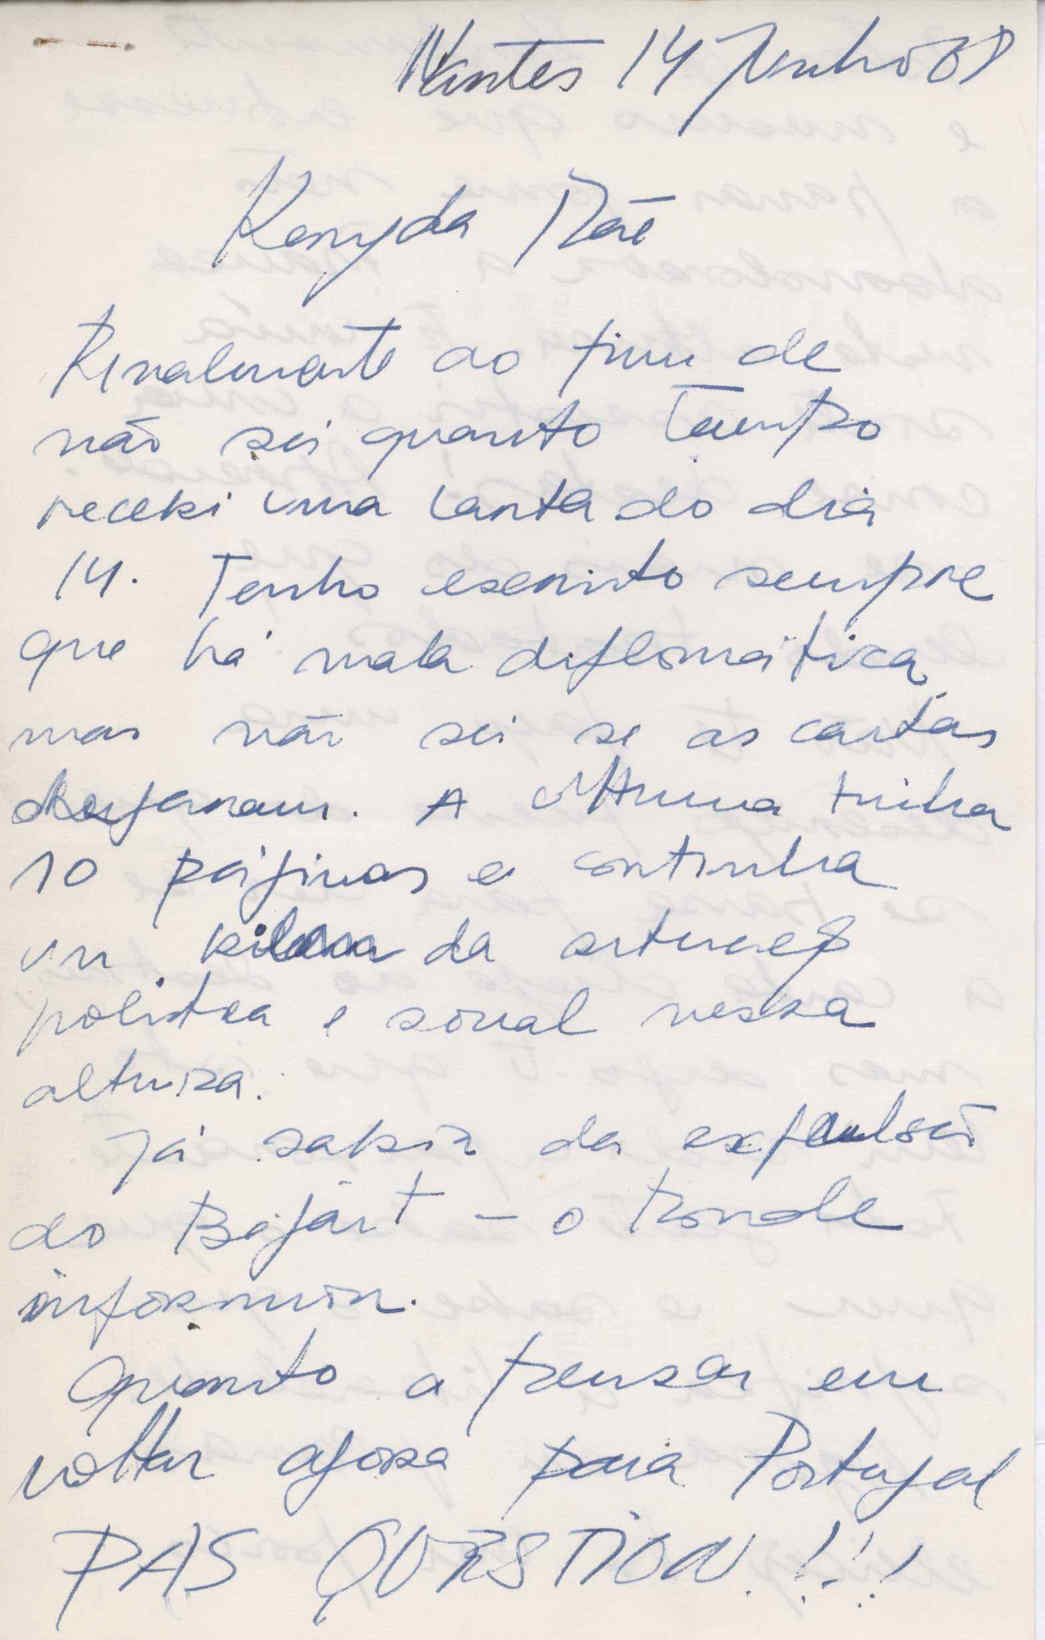 Nantes 14 Junho 68
Kenyda Mãe
Finalmente ao fim de
não sei quanto tempo
recebi uma carta do dia
14. Tenho escrito sempre
que há mala diplomática,
mas não sei se as cartas
chegaram. A última tinha
10 páginas e continha
um da situação
politica e social nessa
altura.
Já sabia da expulsão
do Béjart - o Monde
informou.
Quanto a pensar em
voltar agora para Portugal
PAS QUESTION!!!